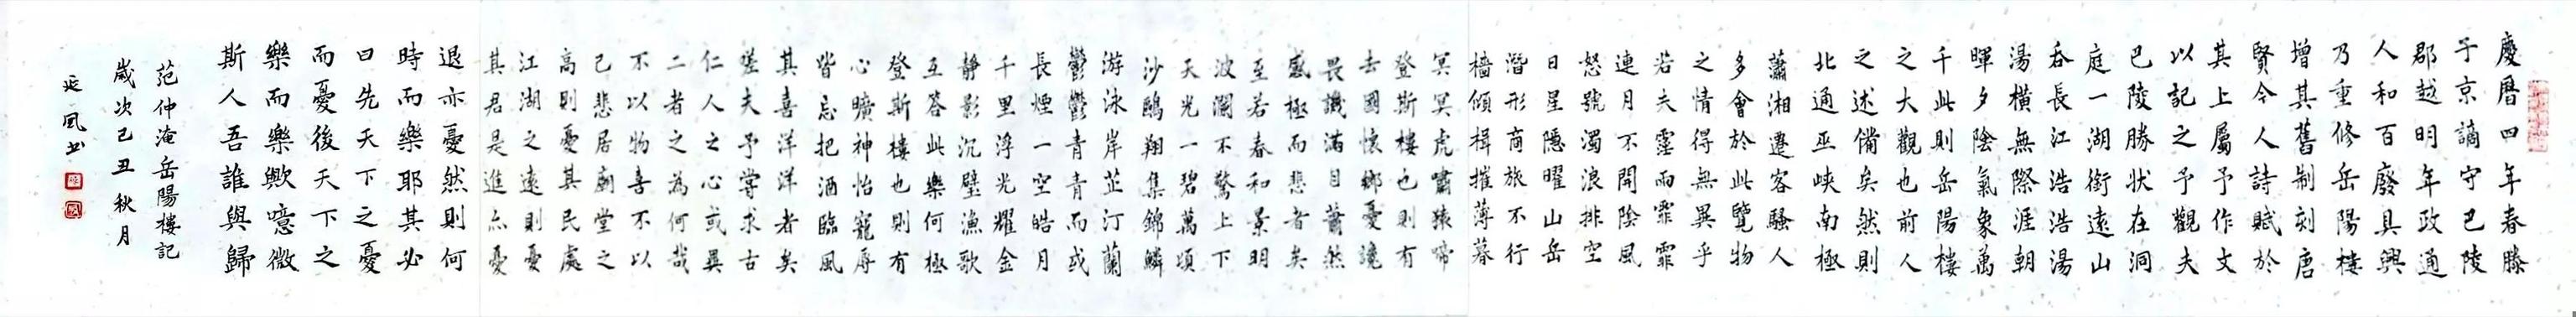 慶曆四年春滕
子京謫守巴陵
郡越明年政通
人和百廢具興
乃重修岳陽樓
增其舊制刻唐
賢今人詩賦於
其上屬予作文
以記之予觀夫
巴陵勝狀在洞
庭一湖銜遠山
吞長江浩浩湯
湯橫無際涯朝
暉夕陰氣象萬
千此則岳陽樓
之大觀也前人
之述備矣然則
北通巫峽南極
瀟湘遷客騷人
多會於此覽物
之情得無異乎
若夫霪雨霏霏
連月不開陰風
怒號濁浪排空
日星隱曜山岳
潛形商旅不行
檣傾楫摧薄暮
冥冥虎嘯猿啼
登斯樓也則有
去國懷鄉憂讒
畏譏滿目蕭然
感極而悲者矣
至若春和景明
波瀾不驚上下
天光一碧萬頃
沙鷗翔集錦鱗
游泳岸芷汀蘭
鬱鬱青青而或
長煙一空皓月
千里浮光耀金
靜影沉璧漁歌
互答此樂何極
登斯樓也則有
心曠神怡寵辱
皆忘把酒臨風
其喜洋洋者矣
嗟夫予嘗求古
仁人之心或異
二者之為何哉
不以物喜不以
己悲居廟堂之
高則憂其民處
江湖之遠則憂
其君是進亦憂
退亦憂然則何
時而樂耶其必
曰先天下之憂
而憂後天下之
樂而樂歟噫微
斯人吾誰與歸
范仲淹岳陽樓記
歲次己丑 秋月
延風書